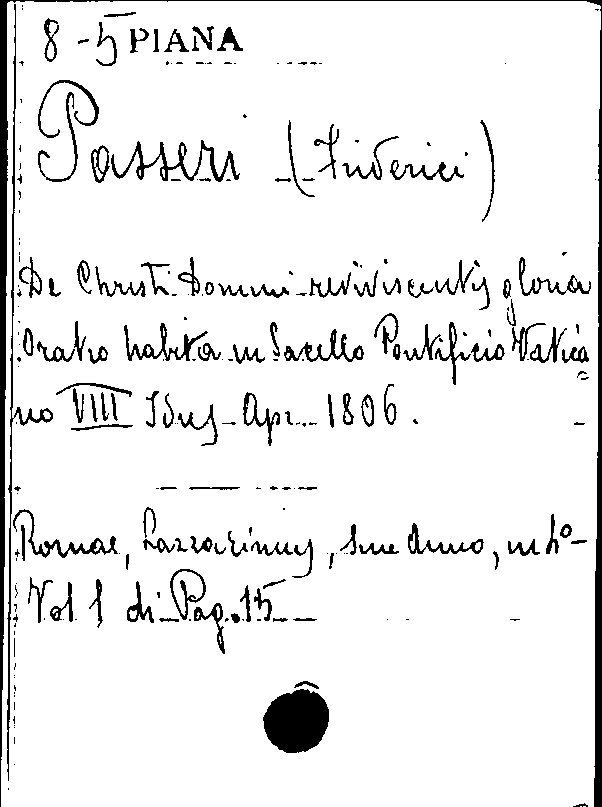 8-5 PIANA
Passeri (Friderici)
De Christi Domini reviviscentis gloria
Oratio habita in Sacello Pontificio Vatica=
no VIII Idus Apr. 1806.
Romae, Lazzarinus, sine anno, in 4º-
Vol 1 di Pag. 15